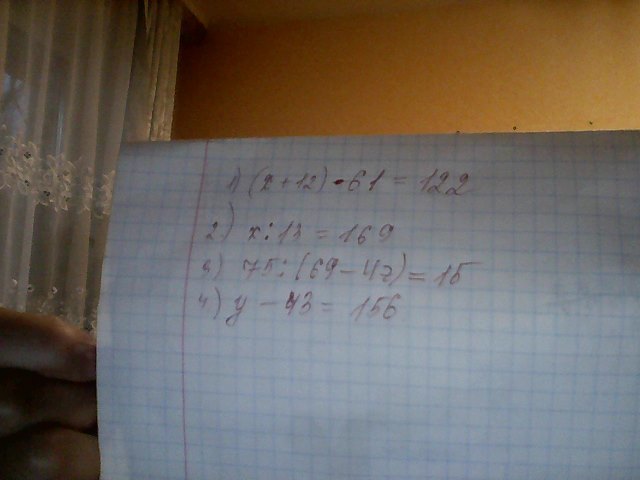 1) (x + 12) • 61 = 122
2) x : 13 = 169
3) 75 : (69 - 4z) = 15
4) y - 43 = 156